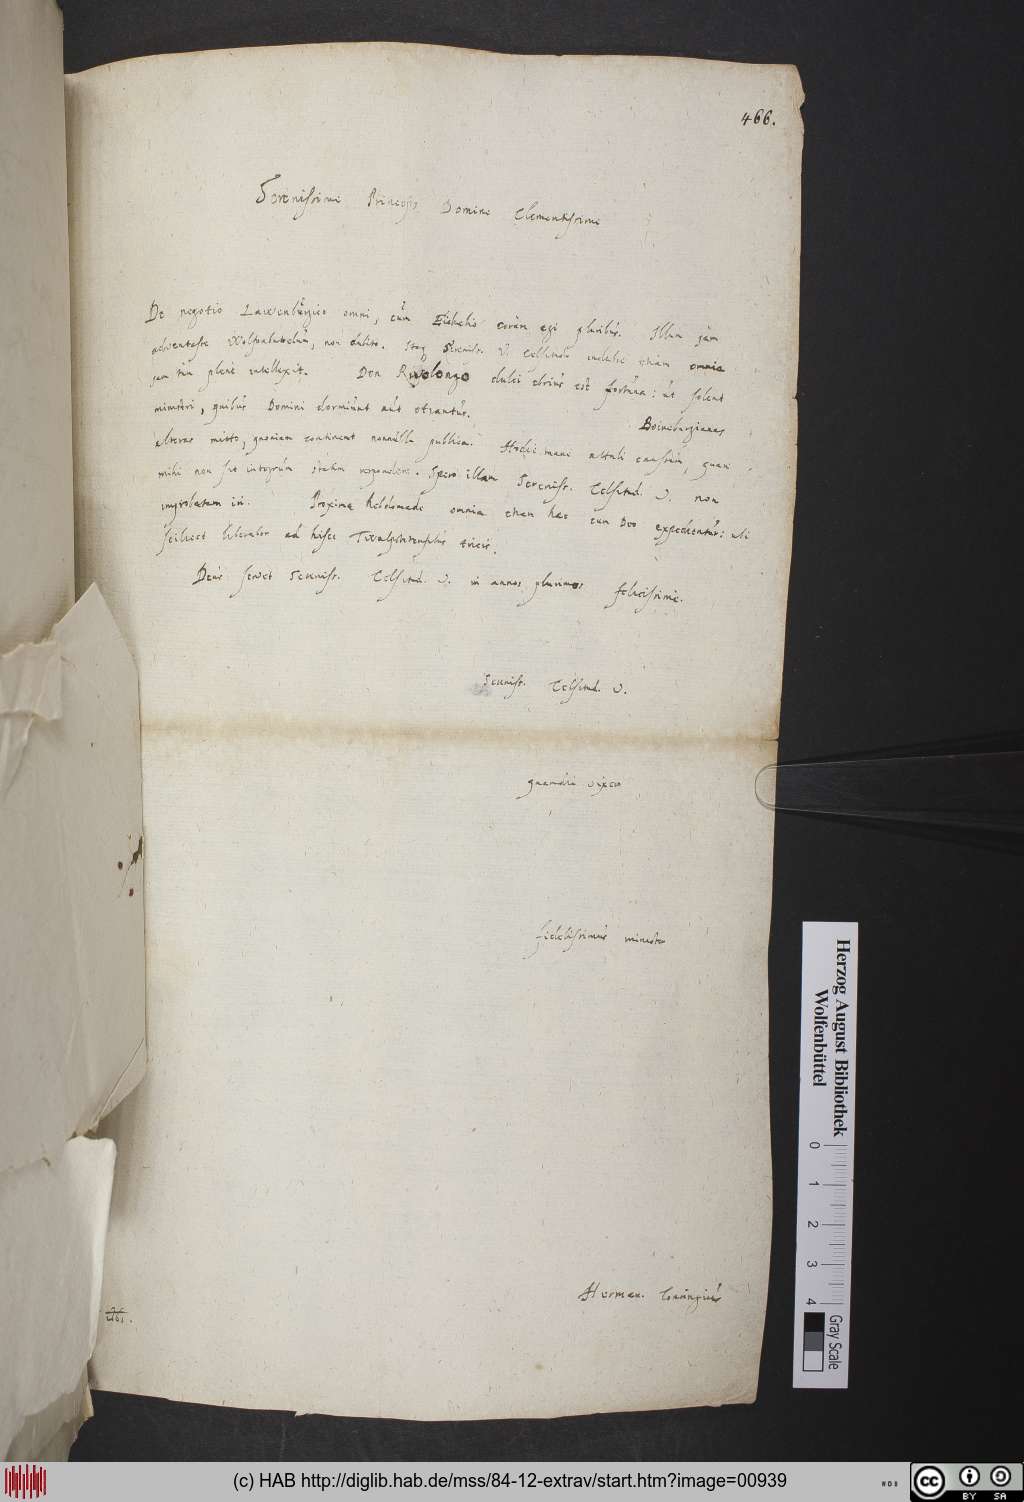 466.
Serenissime Princeps Domine Clementissime
De negotio Lawenburgico omni, cum coram egi pluribus. Illum jam
non dubito. Itaq Sereniss. V. Celsitudo etiam omnia
jam tum plene intellexit. Den dulci ebrius est fortuna: ut solent
ministri, quibus Domini dormiunt aut otiantur. Boineburgianas
alteras mitto, quoniam continent nonnulla publica. Hodie mane attuli
mihi non sit integrum statim respondere. Spero illam Sereniss. Celsitud. V. non
improbaturam. Proxima hebdomade omnia etiam haec cum Deo expedientur: ubi
scilicet liberabor ad hisce tricis.
Deus servet Sereniss. Celsitud. V. in annos plurimos felicissime.
Sereniss. Celsitud. V.
quamdiu vixero
fidelissimus minister
Herman. Conringius
Herzog August Bibliothek
Wolfenbüttel
0 1 2 3 4
Gray Scale
(c) HAB http://diglib.hab.de/mss/84-12-extrav/start.htm?image=00939
cc BY SA